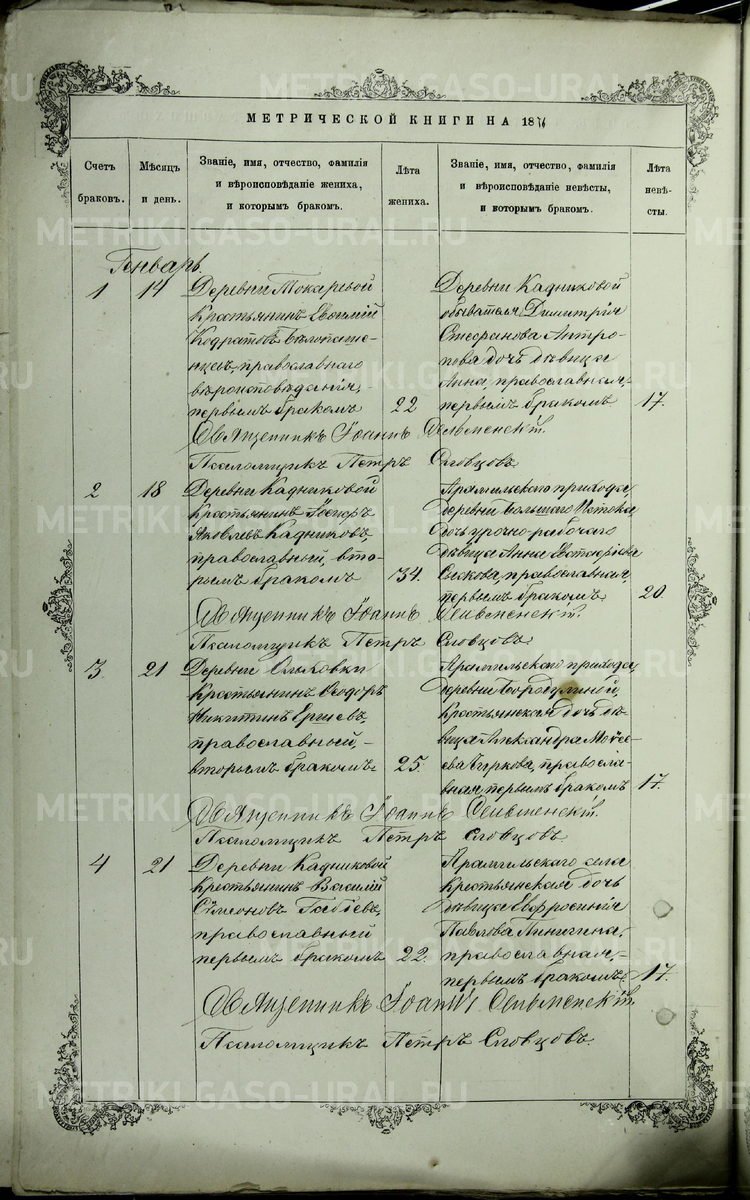 МЕТРИЧЕСКОЙ КНИГИ НА 1871
Счетъ браковъ.
Мѣсяцъ и день.
Званіе, имя, отчество, фамилія
и вѣроисповѣданіе жениха,
и которымъ бракомъ.
Лѣта жениха.
Званіе, имя, отчество, фамилія
и вѣроисповѣданіе невѣсты,
и которымъ бракомъ.
Лѣта невѣ-
сты.
Генварь.
1 14 Деревни Токаревой
Крестьянинъ
православнаго
вѣроисповѣданія,
первымъ бракомъ 22
Деревни Кадниковой
обывателя Димитрія
Стефанова Антро-
пова дочь дѣвица
Анна, православная,
первымъ бракомъ 17.
Священникъ Іоаннъ
Псаломщикъ Петръ Словцовъ
2 18 Деревни Кадниковой
Крестьянинъ
Яковлевъ Кадниковъ,
православный, вто-
рымъ бракомъ 34.
Арамильскаго прихода,
деревни Большаго Истока,
дочь урочно-рабочаго
дѣвица Анна
православная,
первымъ бракомъ 20
Священникъ Іоаннъ
Псаломщикъ Петръ Словцовъ
3 21 Деревни
Крестьянинъ Ѳеодоръ
Никитинъ
православный,-
вторымъ бракомъ 25.
Арамильскаго прихода,
деревни Бородулиной,
крестьянская дочь дѣ-
вица Александра Моисе-
ева Чиркова, правосла-
вная, первымъ бракомъ 17.
Священникъ Іоаннъ
Псаломщикъ Петръ Словцовъ
4 21 Деревни Кадниковой
Крестьянинъ Василій
Симеоновъ
православный
первымъ бракомъ 22.
Арамильскаго села
крестьянская дочь
дѣвица Евфросинія
Павлова Пинигина,
православная,-
первымъ бракомъ 17.
Священникъ Іоаннъ
Псаломщикъ Петръ Словцовъ.
METRIKI.GASO-URAL.RU